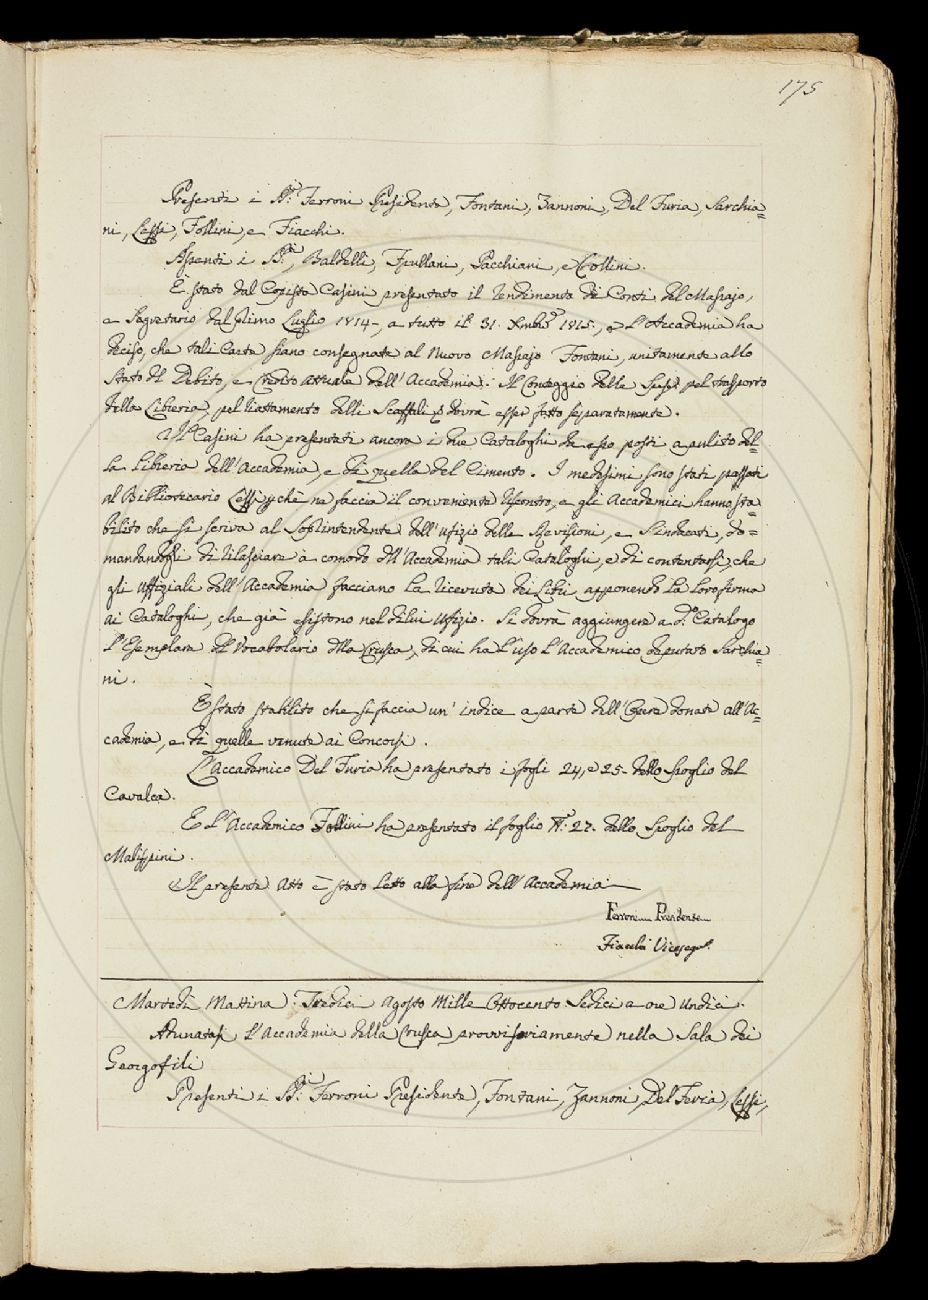 175
Presenti i SS.ri Ferroni Presidente, Fontani, Zannoni, Del Furia, Sarchia=
ni, Lessi, Follini, e Fiacchi.
Assenti i SS.ri, Baldelli, Frullani, Pacchiani, e Collini.
È stato dal Copista Casini presentato il rendimento de Conti del Massajo,
e Segretario dal primo Luglio 1814, a tutto il 31. Xmbre 1815., e l'Accademia ha
deciso, che tali Carte siano consegnate al Nuovo Massajo Fontani, unitamente allo
Stato di Debito, e Credito attuale dell'Accademia. Il Conteggio delle Spese pel trasporto
della Libreria, pel riattamento delli Scaffali &c dovrà esser fatto separatamente.
Il Casini ha presentati ancora i due Cataloghi da esso posti a pulito del=
la Libreria dell'Accademia, e di quella del Cimento. I medesimi sono stati passati
al Bibliotecario Lessi, perchè ne faccia il conveniente riscontro, e gli Accademici hanno sta=
bilito che si scriva al Soprintendente dell'Ufizio delle Revisioni, e Sindacati, do=
mandandogli di rilasciare à comodo dell'Accademia tali Cataloghi, e di contentarsi, che
gli Uffiziali dell'Accademia facciano la ricevuta dei Libri apponendo la loro firma
ai Cataloghi, che già esistono nel di lui Ufizio. Si dovrà aggiungere a d.o Catalogo
l'Esemplare del Vocabolario della Crusca, di cui ha l'uso l'Accademico deputato Sarchia=
ni.
È stato stabilito che si faccia un' indice a parte dell'Opere donate all'Ac=
cademia, e di quelle venute ai Concorsi.
L'Accademico Del Furia ha presentato i fogli 24, e 25. dello Spoglio del
Cavalca.
E l'Accademico Follini ha presentato il foglio N.o 27. dello Spoglio del
Malispini.
Il presente Atto è stato letto alla fine dell'Accademia
Ferroni Presidente
Fiacchi Vicesegr.o
Martedì Mattina Tredici Agosto Mille Ottocento Sedici a ore Undici.
Adunatasi l'Accademia della Crusca provvisoriamente nella Sala dei
Georgofili
Presenti i SS.ri Ferroni Presidente, Fontani, Zannoni, Del Furia, Lessi,